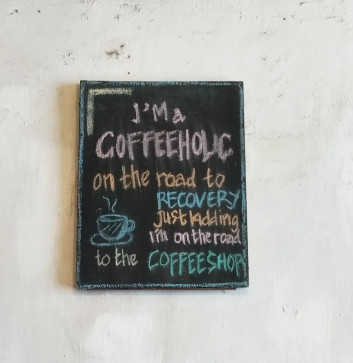 I'M a
COFFEEHOLIC
on the road to
RECOVERY
Just kidding
I'm on the road
to the COFFEESHOP